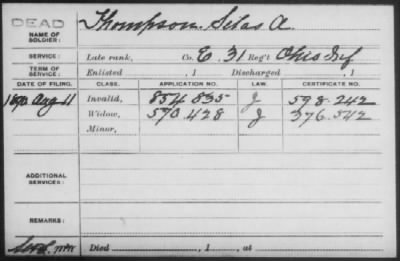 DEAD
NAME OF SOLDIER: Thompson Silas A.
SERVICE: Late rank, Co. E. 31 Reg't Ohio Inf
TERM OF SERVICE: Enlisted , 1 Discharged , 1
DATE OF FILING. CLASS. APPLICATION NO. LAW. CERTIFICATE NO.
1890 Aug 11 Invalid, 854.835 J 598.242
Widow, 590.428 J 376.542
Minor,
ADDITIONAL SERVICES:
REMARKS:
Died , 1 , at